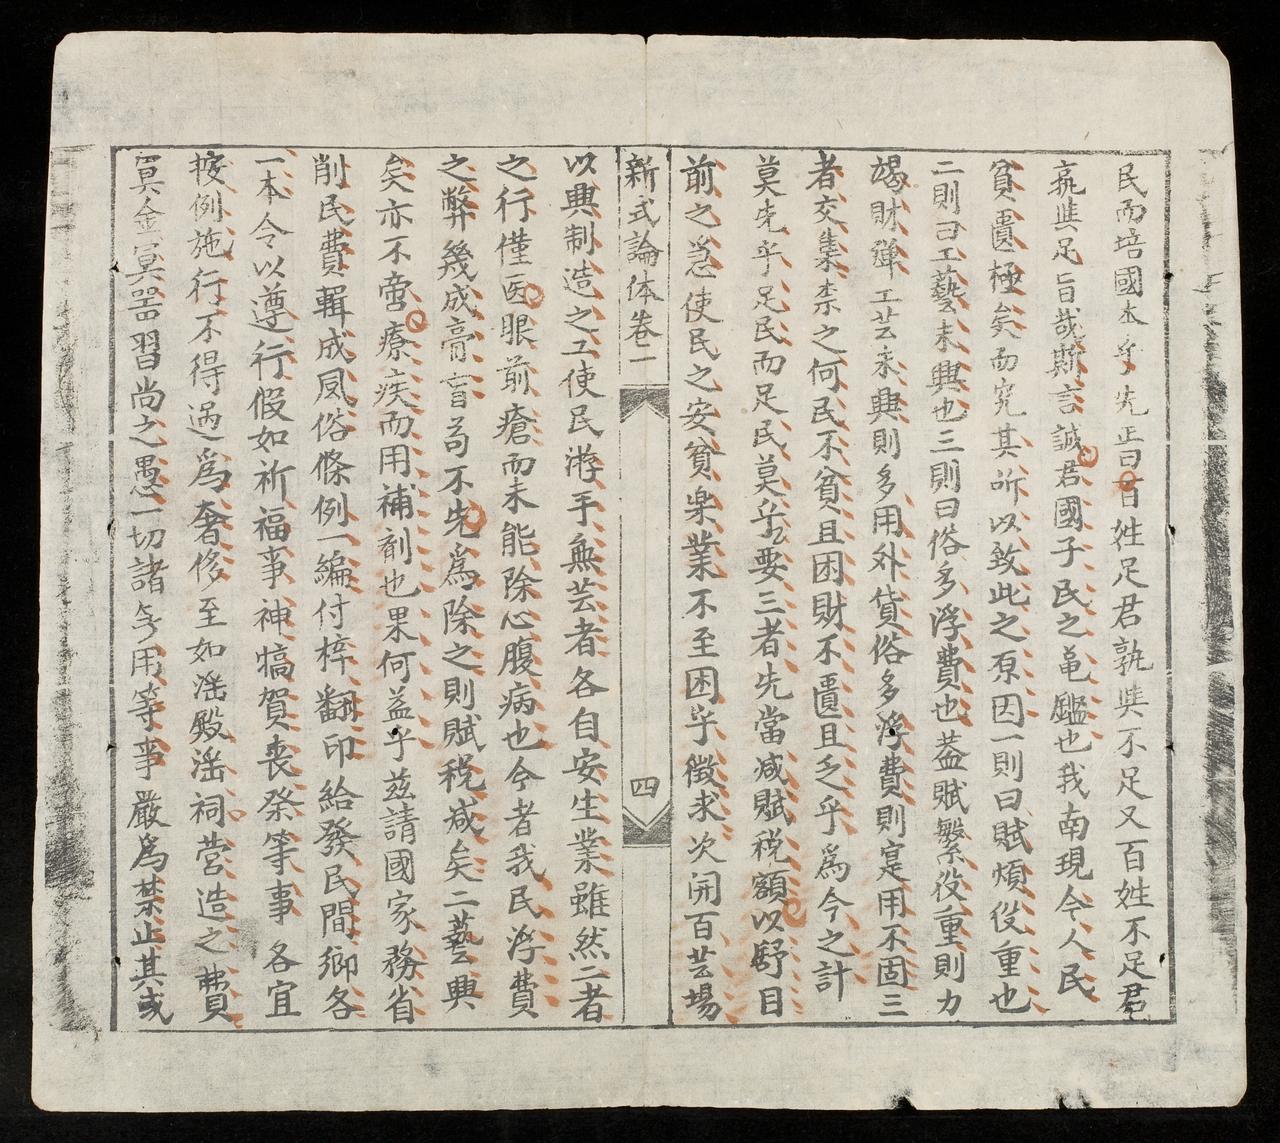 民而培國本乎先正曰百姓足君孰與不足又百姓不足君
孰與足旨哉斯言誠君國子民之龜鑑也我南現今人民
貧匱極矣而究其所以致此之原因一則曰賦煩役重也
二則曰工藝未興也三則曰俗多浮費也蓋賦繁役重則力
竭財殫工芸未興則多用外貨俗多浮費則寔用不固三
者交集柰之何民不貧且困財不匱且乏乎爲今之計
莫先乎足民而足民莫乎要三者先當减賦税額以舒目
前之急使民之安貧樂業不至困乎徵求次開百芸場
新式論体卷二
四
以興制造之工使民游手無芸者各自安生業雖然二者
之行僅医眼前瘡而未能除心腹病也今者我民浮費
之弊幾成膏肓苟不先爲除之則賦税减矣工藝興
矣亦不啻療疾而用補劑也果何益乎茲請國家務省
削民費輯成風俗條例一編付梓翻印給發民間鄉各
一本令以遵行假如祈福事神犒賀喪祭等事各宜
按例施行不得過爲奢侈至如淫殿淫祠营造之費
冥金冥器習尚之愚一切諸 用等事嚴爲禁止其或